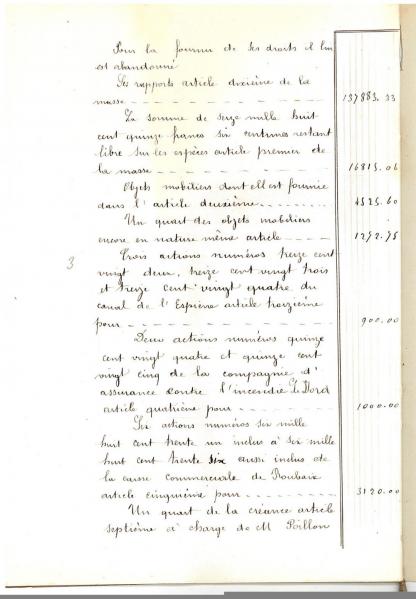 Pour la fournir de ses droits il lui
est abandonné
Ses rapports article dixième de la
masse 137883.33
La somme de seize mille huit
cent quinze francs six centimes restant
libre sur les espèces article premier de
la masse 16815.06
Objets mobiliers dont ell est fournie
dans l'article deuxième 4525.60
Un quart des objets mobiliers
encore en nature même article 1272.75
3
Trois actions numéros treize cent
vingt deux, treize cent vingt trois
et treize cent vingt quatre du
canal de l'Espierre article troizième
pour 900.00
Deux actions numéros quinze
cent vingt quatre et quinze cent
vingt cinq de la compagnie d'
assurance contre l'incendie Le Nord
article quatrième pour 1000.00
Six actions numéros six mille
huit cent trente un inclus à six mille
huit cent trente six aussi inclus de
la caisse commerciale de Roubaix
article cinquième pour 3120.00
Un quart de la créance article
septième à charge de M Poillon